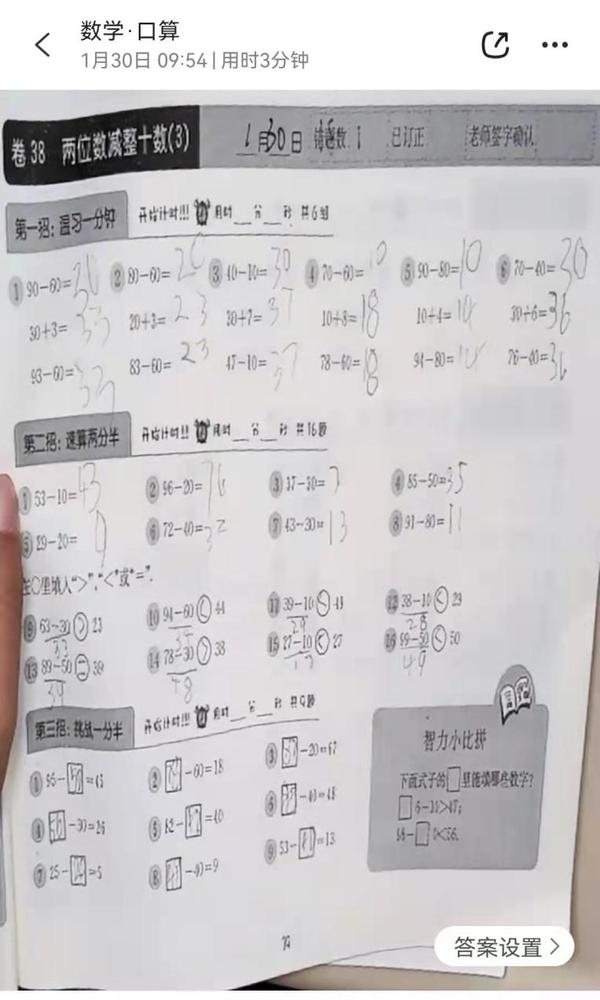 数学·口算
1月30日 09:54 | 用时3分钟
卷 38 两位数减整十数(3) 1月30日 错题数 1 已订正 老师签字确认
第一招:温习一分钟 开始计时!!! 用时__分__秒 共6组
① 90-60= ② 80-60=20 ③ 40-10=30 ④ 70-60=10 ⑤ 90-80=10 ⑥ 70-40=30
30+3=33 20+3=23 30+7=37 10+8=18 10+4=14 30+6=36
93-60=33 83-60=23 47-10=37 78-60=18 94-80=14 76-40=36
第二招:速算两分半 开始计时!!! 用时__分__秒 共16题
① 53-10=43 ② 96-20=76 ③ 37-30=7 ④ 85-50=35
⑤ 29-20=9 ⑥ 72-40= ⑦ 43-30=13 ⑧ 91-80=11
在○里填入“>”,“<”或“=”.
⑨ 63-30>23 ⑩ 94-60<44 ⑪ 39-10<49 ⑫ 38-10<29
33 29 28
⑬ 89-50=39 ⑭ 78-30>38 ⑮ 27-10<27 ⑯ 99-50<50
39 48 17 49
第三招:挑战一分半 开始计时!!! 用时__分__秒 共9题
① 95-□=45 ② □-60=18 ③ □-20=67
④ □-30=26 ⑤ 82-□=40 ⑥ □-40=48
⑦ 25-□=5 ⑧ □-40=9 ⑨ 53-□=13
智力小比拼
下面式子的□里能填哪些数字?
□6-10>47;
96-□0<56.
答案设置